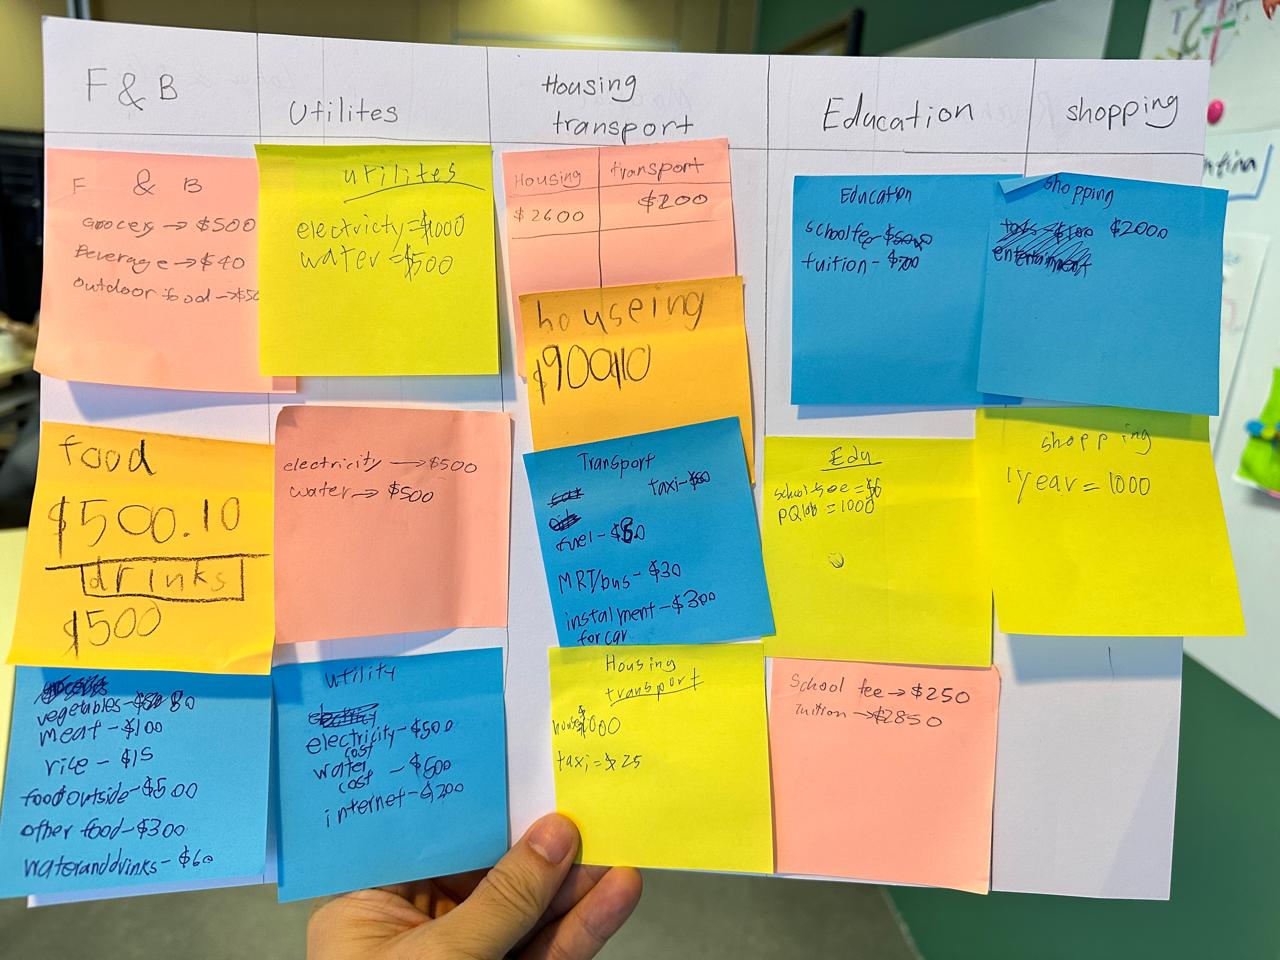 F & B
Utilites
Housing
transport
Education
shopping
F & B
Grocery → $500
Beverage → $40
outdoor food → $50
utilites
electricity = $1000
water = $500
Housing
transport
$2600
$200
houseing
$900.10
Education
school fee -
tuition -
shopping
$2000
entertainment
food
$500.10
drinks
$500
electricity → $500
water → $500
Transport
taxi -
fuel -
MRT/bus - $30
instalment - $300
for car
Edu
school fee =
= 1000
shopping
1 year = 1000
vegetables - 80
meat - $100
rice - $15
food outside - $500
other food - $300
water and drinks - $60
utility
electricity - $500
cost
water - $500
cost
internet - $200
Housing
transport
house
taxi = $25
School fee → $250
Tuition → $2850